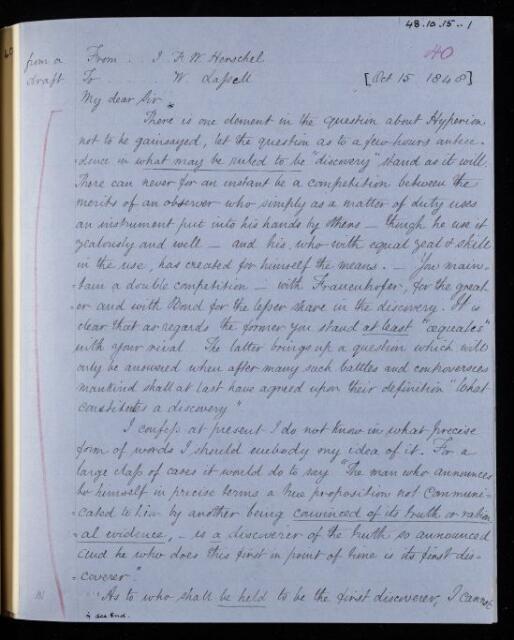 48.10.15..1
40
from a From . . J. F. W. Herschel
draft To . . W. Lassell [Oct 15 1848]
My dear Sir
There is one element in the question about Hyperion
not to be gainsayed, let the question as to a few hours antece-
dence in what may be ruled to be "discovery" stand as it will.
There can never for an instant be a competition between the
merits of an observer who simply as a matter of duty uses
an instrument put into his hands by others – though he use it
zealously and well – and his, who with equal zeal & skill
in the use, has created for himself the means. – You main-
-tain a double competition – with Frauenhofer, for the great-
-er and with Bond for the lesser share in the discovery. It is
clear that as regards the former you stand at least "æqualis"
with your rival. The latter brings up a question which will
only be answered when after many such battles and controversies
mankind shall at last have agreed upon their definition "What
constitutes a discovery"
I confess at present I do not know in what precise
form of words I should embody my idea of it. For a
large class of cases it would do to say "The man who announces
to himself in precise terms a true proposition not communi-
-cated to him by another being convinced of its truth on ration-
-al evidence, – is a discoverer of the truth so announced
and he who does this first in point of time is its first dis-
-coverer".
As to who shall be held to be the first discoverer, I cannot